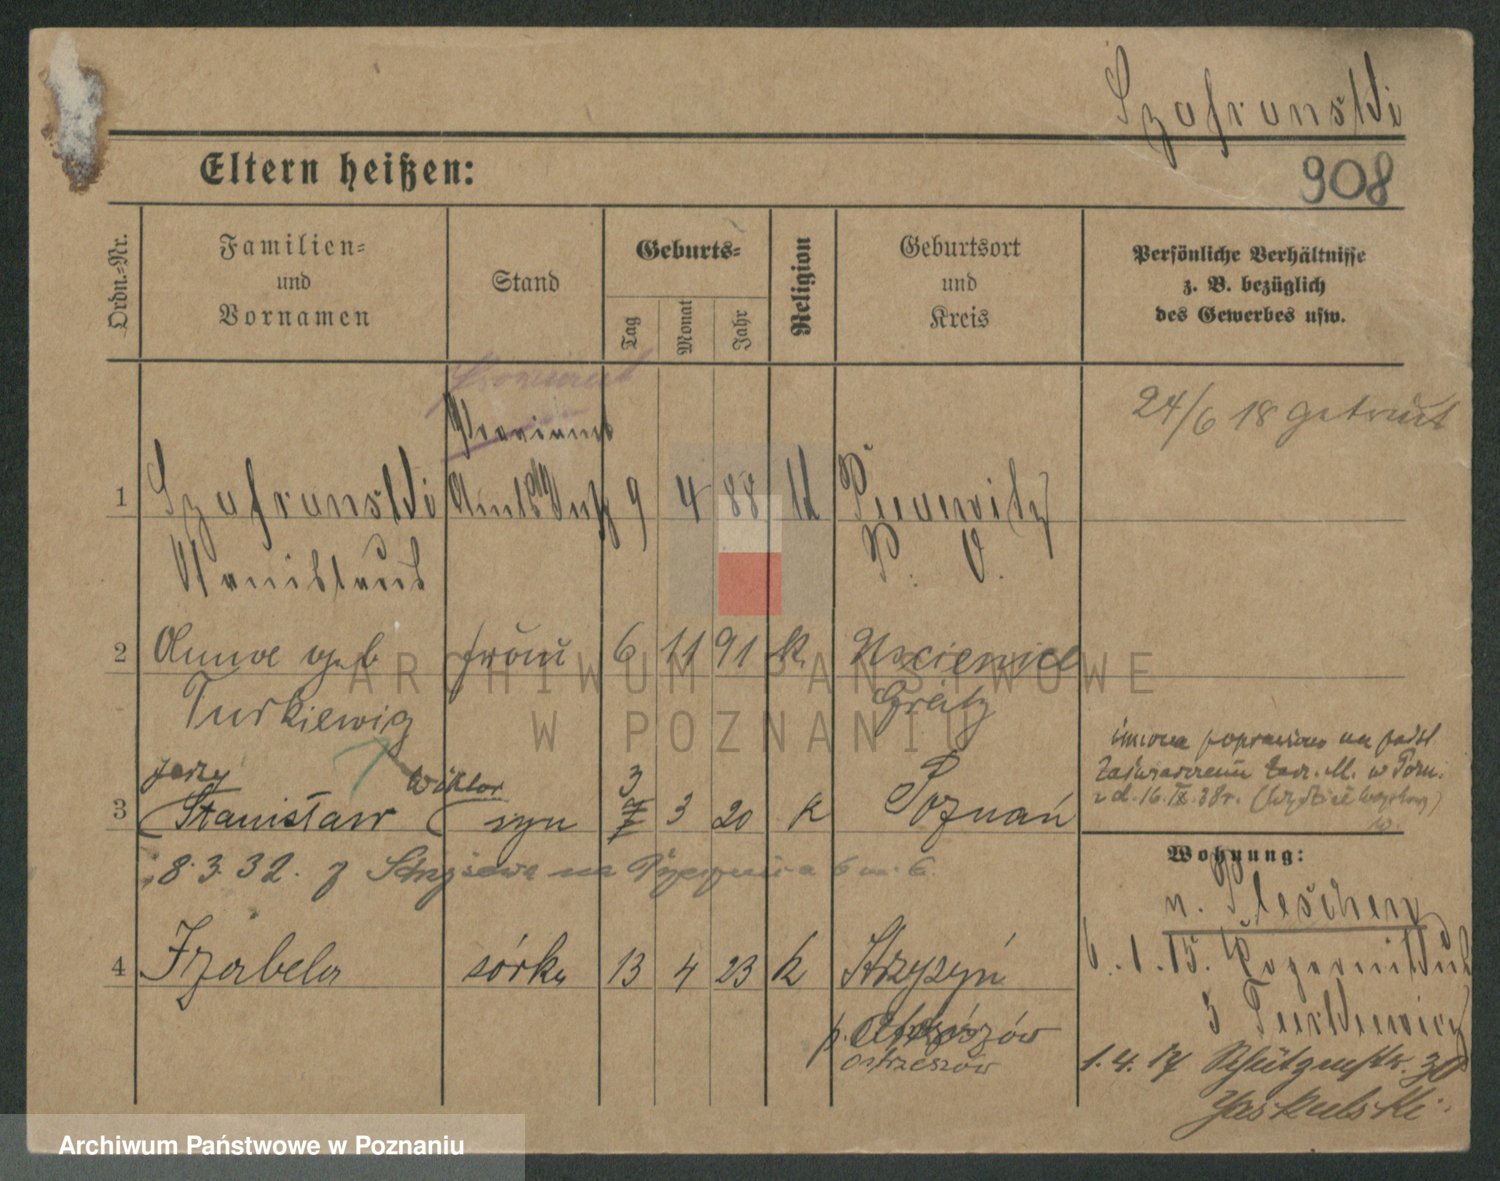 Szafranski
908
Eltern heißen:
Ordn.=Nr.
Familien=
und
Vornamen
Stand
Geburts=
Tag
Monat
Jahr
Religion
Geburtsort
und
Kreis
Persönliche Verhältnisse
z. B. bezüglich
des Gewerbes usw.
Proviant
24/6 18 getraut
Proviant
1 Szafranski Amts 9 4 88 k
Stanislaus P. O.
2 frau 6 11 91 k.
Grätz
Jerzy Wiktor 3
3 (Stanisław ( syn 3 20 k Poznań
imiona poprawiono na podst.
zaświadczenia w Pozn.
z d. 16. IX. 38 r.
Wohnung:
8.3.32. z na 6 m. 6.
n. Pleschen
4 Izabela córka 13 4 23 k
6.1.15.
3 Turkiewicz
p.
Ostrzeszów
1.4.17 Schützenstr. 30
Jaskulski.
ARCHIWUM PAŃSTWOWE
W POZNANIU
Archiwum Państwowe w Poznaniu